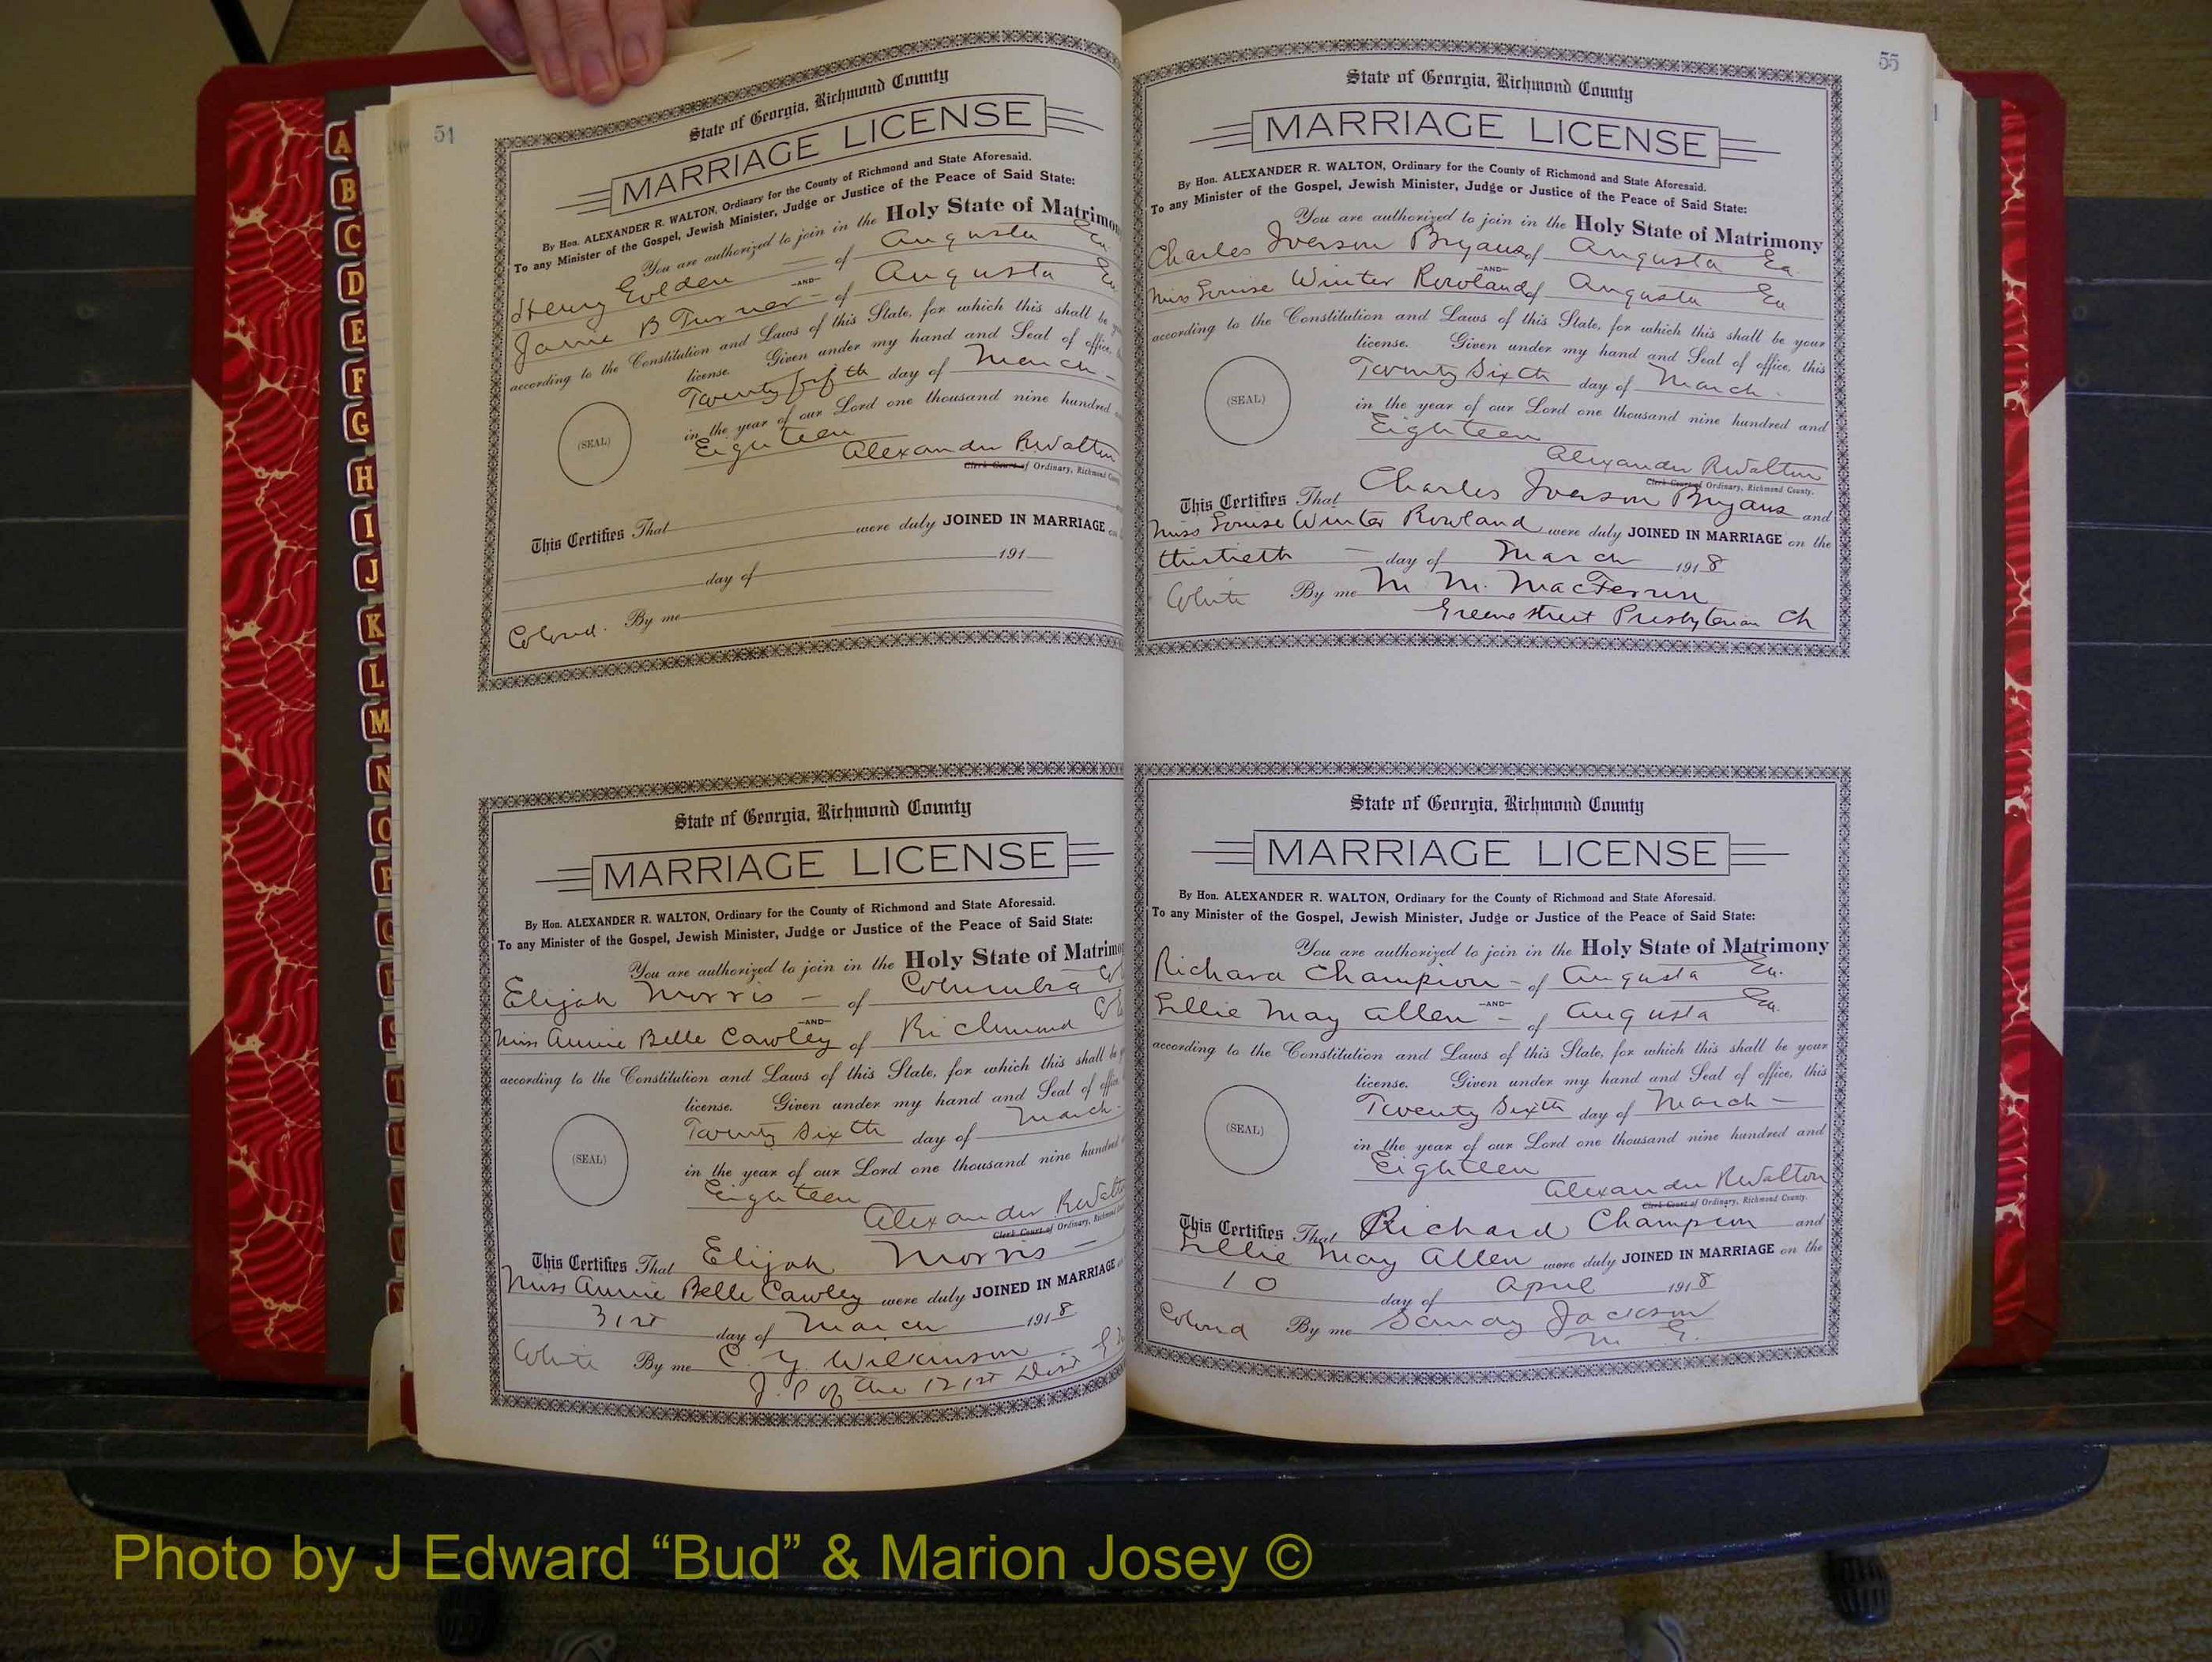 54
State of Georgia, Richmond County
MARRIAGE LICENSE
By Hon. ALEXANDER R. WALTON, Ordinary for the County of Richmond and State Aforesaid.
To any Minister of the Gospel, Jewish Minister, Judge or Justice of the Peace of Said State:
You are authorized to join in the Holy State of Matrimo
Henry Golden of Augusta Ga
Janie B Turner of Augusta Ga
-AND-
according to the Constitution and Laws of this State, for which this shall be
license. Given under my hand and Seal of office,
Twenty fifth day of March
in the year of our Lord one thousand nine hundred
Eighteen
Alexander R Walton
Clerk Court of Ordinary, Richmond County
(SEAL)
This Certifies That
were duly JOINED IN MARRIAGE on
day of 191
Colored. By me
State of Georgia, Richmond County
MARRIAGE LICENSE
By Hon. ALEXANDER R. WALTON, Ordinary for the County of Richmond and State Aforesaid.
To any Minister of the Gospel, Jewish Minister, Judge or Justice of the Peace of Said State:
You are authorized to join in the Holy State of Matrimo
Elijah Morris of Columbia Co
-AND-
Miss Annie Belle Cawley of Richmond Co
according to the Constitution and Laws of this State, for which this shall be
license. Given under my hand and Seal of office,
Twenty Sixth day of March
in the year of our Lord one thousand nine hundred
Eighteen
Alexander R Walto
Clerk Court of Ordinary, Richmond
(SEAL)
This Certifies That Elijah Morris
Miss Annie Belle Cawley were duly JOINED IN MARRIAGE
31st day of March 1918
White By me C. Y. Wilkinson
J. P of the 121st Dist
55
State of Georgia, Richmond County
MARRIAGE LICENSE
By Hon. ALEXANDER R. WALTON, Ordinary for the County of Richmond and State Aforesaid.
To any Minister of the Gospel, Jewish Minister, Judge or Justice of the Peace of Said State:
You are authorized to join in the Holy State of Matrimony
Charles Iverson Bryans of Augusta Ga
-AND-
Miss Louise Winter Rowland of Augusta Ga
according to the Constitution and Laws of this State, for which this shall be your
license. Given under my hand and Seal of office, this
Twenty Sixth day of March
in the year of our Lord one thousand nine hundred and
Eighteen
Alexander R Walton
Clerk Court of Ordinary, Richmond County.
(SEAL)
This Certifies That Charles Iverson Bryans and
Miss Louise Winter Rowland were duly JOINED IN MARRIAGE on the
thirtieth day of March 1918
White By me M. M. MacFerrin
Greene Street Presbyterian Ch
State of Georgia, Richmond County
MARRIAGE LICENSE
By Hon. ALEXANDER R. WALTON, Ordinary for the County of Richmond and State Aforesaid.
To any Minister of the Gospel, Jewish Minister, Judge or Justice of the Peace of Said State:
You are authorized to join in the Holy State of Matrimony
Richard Champion of Augusta Ga.
-AND-
Lillie May Allen of Augusta Ga.
according to the Constitution and Laws of this State, for which this shall be your
license. Given under my hand and Seal of office, this
Twenty Sixth day of March
in the year of our Lord one thousand nine hundred and
Eighteen
Alexander R Walton
Clerk Court of Ordinary, Richmond County.
(SEAL)
This Certifies That Richard Champion and
Lillie May Allen were duly JOINED IN MARRIAGE on the
10 day of April 1918
Colored By me Sanday Jackson
M. G.
A
B
C
D
E
F
G
H
I
J
K
L
M
N
O
P
Photo by J Edward “Bud” & Marion Josey ©